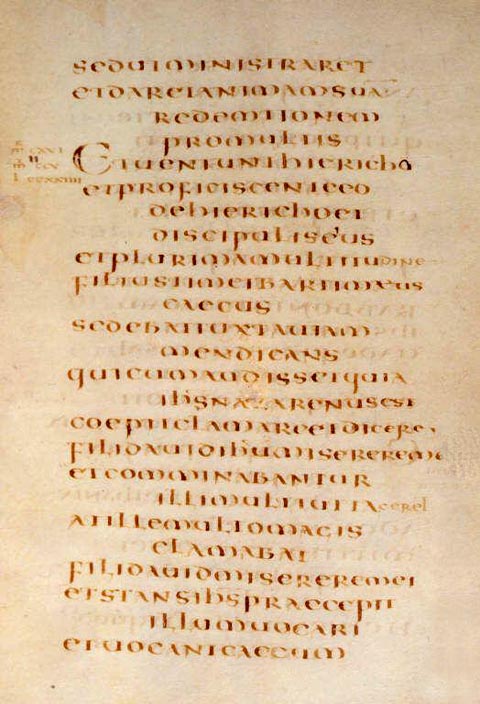 sed ut ministraret
et daret animam suā
redemtionem
pro multis
Et veniunt hiericho
et proficiscente eo
de hiericho et
discipulis eius
et plurima multitudine
filius timei bartimaeus
caecus
sedebat iuxta uiam
mendicans
qui cum audisset quia
ihs nazarenus est
coepit clamare et dicere
fili dauid ihu miserere mei
et comminabantur
illi multi ut taceret
at ille multo magis
clamabat
fili dauid miserere mei
et stans ihs praecepit
illum uocari
et uocant caecum